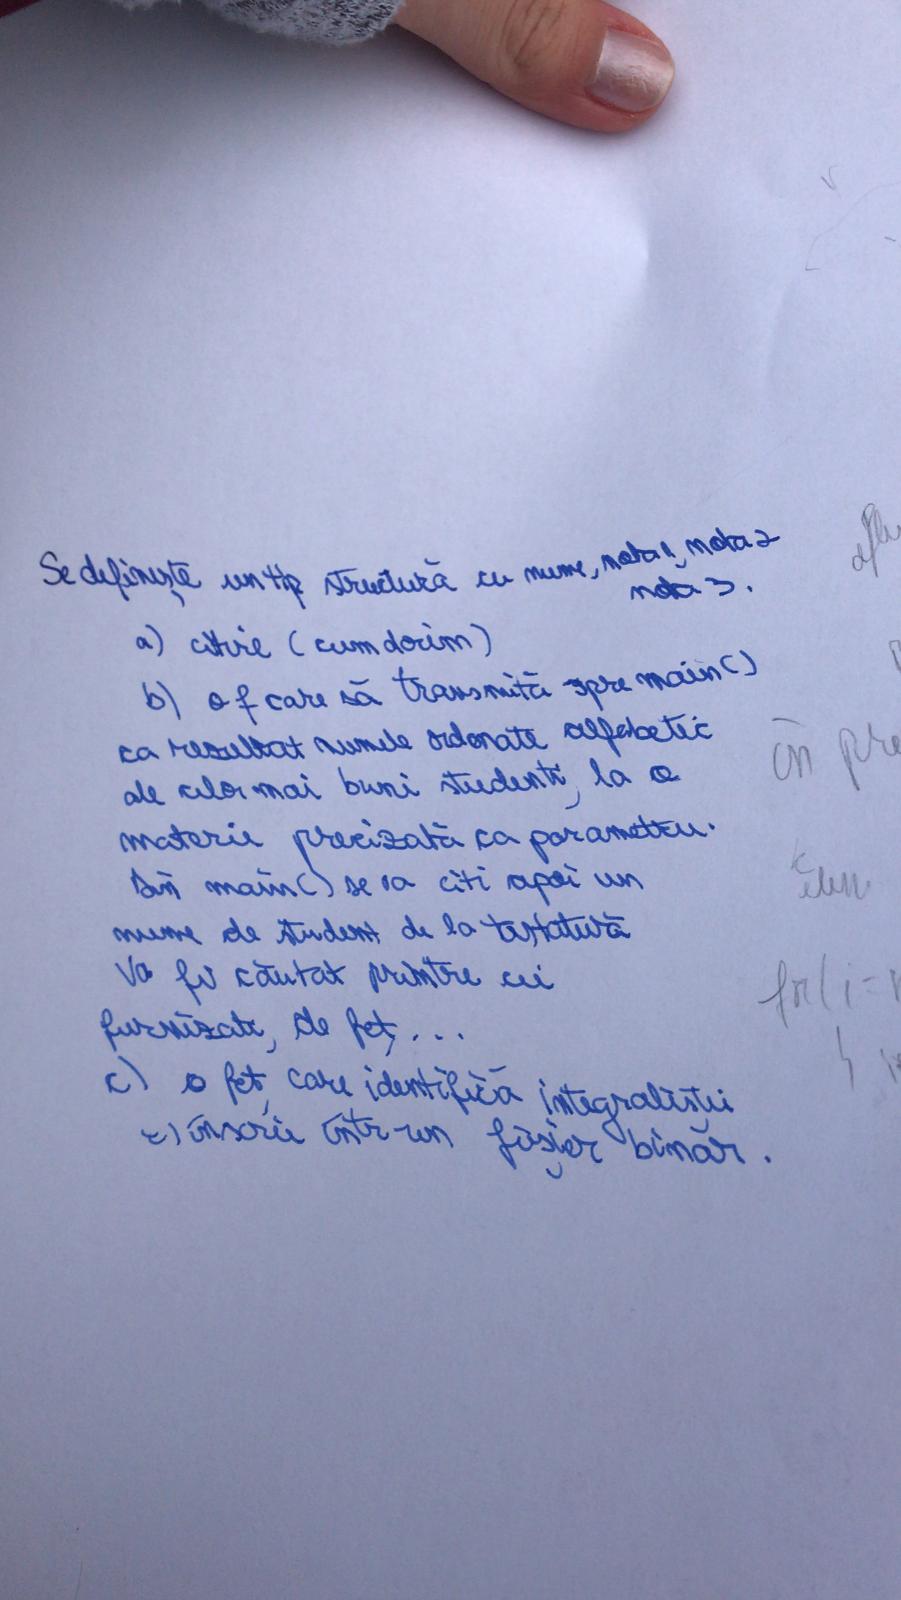 Se definește un tip structură cu nume, nota1, nota2
nota3.
a) citire (cum dorim)
b) o f care să transmită spre main()
ca rezultat numele ordonate alfabetic
ale celor mai buni studenți, la o
materie precizată ca parametru.
Din main() se va citi apoi un
nume de student de la tastatură
Va fi căutat printre cei
furnizați de fct, ...
c) o fct, care identifică integraliștii
și înscrie într-un fișier binar.
în pre
elem
for(i=